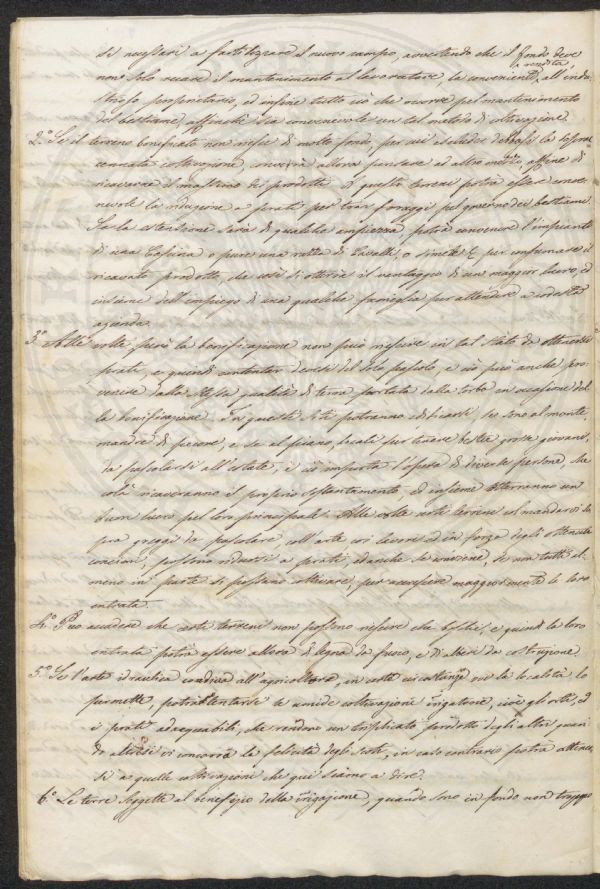 si necessari a fertilizzare il nuovo campo, avvertendo che il fondo deve
non solo recare il mantenimento al lavoratore, la conveniente rendita all' indu
strioso proprietario, ed infine tutto ciò che occorre pel mantenimento
del bestiame affinchè sia convenevole un tal metodo di coltivazione.
2.° Se il terreno bonificato non fosse di molto fondo, per cui escluder debbasi la sopra
cennata coltivazione, converrà allora pensare ad altro modo, affine di
ricavarne il massimo dei prodotti. A questi terreni potrà essere conve
nevole la riduzione a prati per trar foraggi pel governo dei bestiami.
Se la estensione sarà di qualche ampiezza, potrà convenire l'impianto
di una Cascina o pure una razza di Cavalli, o simile per consumare il
ricavato prodotto, che così si otterrà il vantaggio di un maggior lucro, ed
insieme dell' impiego di una qualche famiglia per attendere a codesta
azienda.
3.° Alle volte però la bonificazione non può riuscire in tal stato da ottenersi
prati, e quindi contentar devesi del solo pascolo, e ciò può anche pro
venire dalla stessa qualità di terra portata dalla torba in occasione del
la bonificazione. In questi siti potranno edificarsi, se sono al monte,
mandre di pecore, e se al piano, locali per tenere bestie grosse giovani,
da pascolarsi all' estate, e ciò importa l'opera di diverse persone, che
colà ricaveranno il proprio sostentamento, ed insieme otterranno un
buon lucro pel loro principale. Alle volte questi terreni col mandarvi so
pra greggi da pascolare, coll' arte coi lavori ed in forza degli ottenuti
concimi, possono ridursi a prati, ed anche se conviene, se non tutti al
meno in parte si possano coltivare, per accrescere maggiormente la loro
entrata.
4.° Può accadere che certi terreni non possono riuscire che boschi, e quindi la loro
entrata potrà essere allora di legna da fuoco, e di alberi da costruzione.
5.° Se l'arte idraulica condurrà all' agricoltura, in certe circostanze ove la località lo
permette, potrà tentarsi la umida coltivazione irrigatoria, cioè gli orti, ed
i prati adacquabili, che rendono un triplicato prodotto degli altri quan
do altresì vi concorra la felicità degli scoli, in caso contrario potrà attener
si a quelle coltivazioni che qui siamo a dire.
6.° Le terre soggette al beneficio della irrigazione, quando sono in fondo non troppo